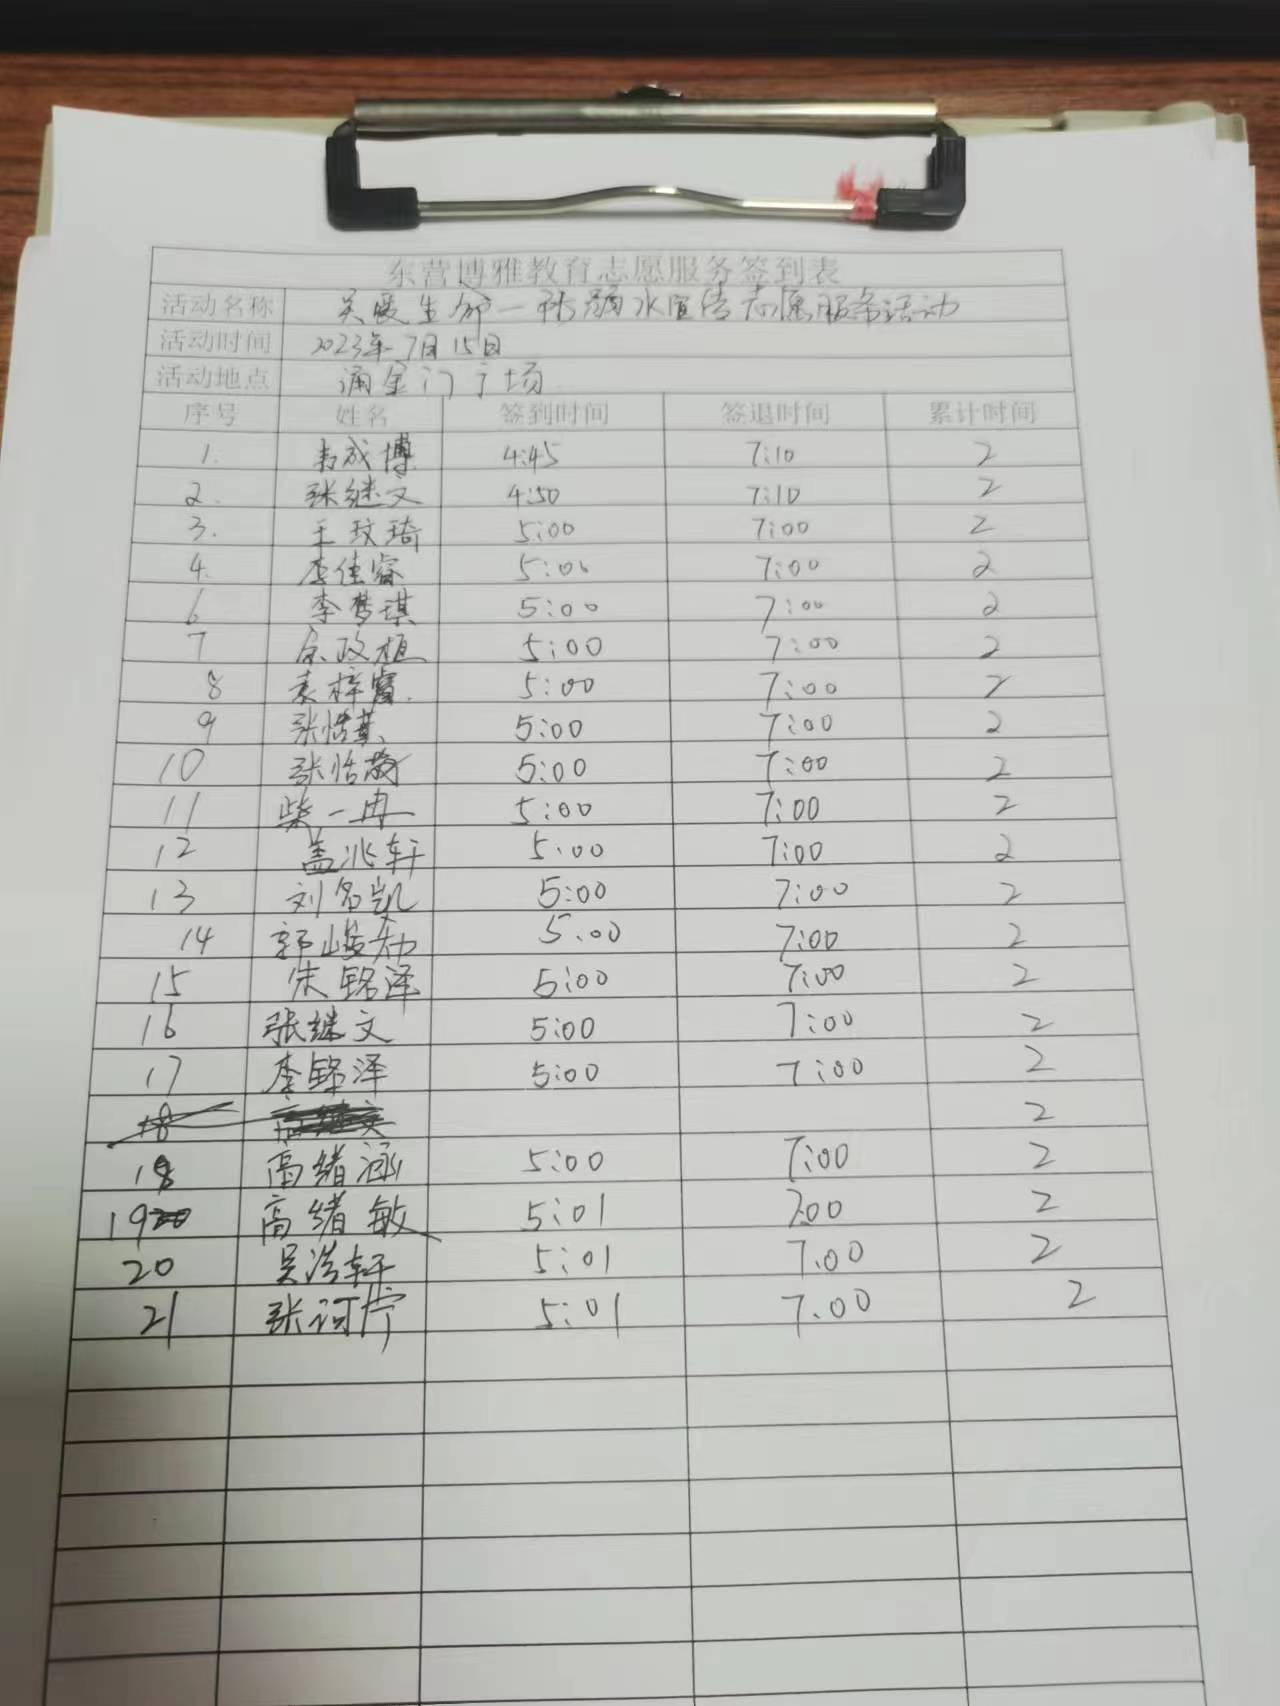 东营博雅教育志愿服务签到表
活动名称 关爱生命—防溺水宣传志愿服务活动
活动时间 2023年7月15日
活动地点 涌金门广场
序号 姓名 签到时间 签退时间 累计时间
1. 韦成博 4:45 7:10 2
2. 张继文 4:50 7:10 2
3. 王玟琦 5:00 7:00 2
4. 李佳睿 5:00 7:00 2
6 李梦琪 5:00 7:00 2
7 政植 5:00 7:00 2
8 袁梓睿. 5:00 7:00 2
9 张恬 5:00 7:00 2
10 张恬 5:00 7:00 2
11 柴一冉 5:00 7:00 2
12 盖兆轩 5.00 7:00 2
13 刘名凯 5:00 7:00 2
14 郭峻劭 5.00 7:00 2
15 朱铭泽 5:00 7:00 2
16 张继文 5:00 7:00 2
17 李铭泽 5:00 7:00 2
18 2
18 高绪涵 5:00 7:00 2
19 高绪敏 5:01 7.00 2
20 吴浩轩 5:01 7.00 2
21 张诃拧 5:01 7.00 2